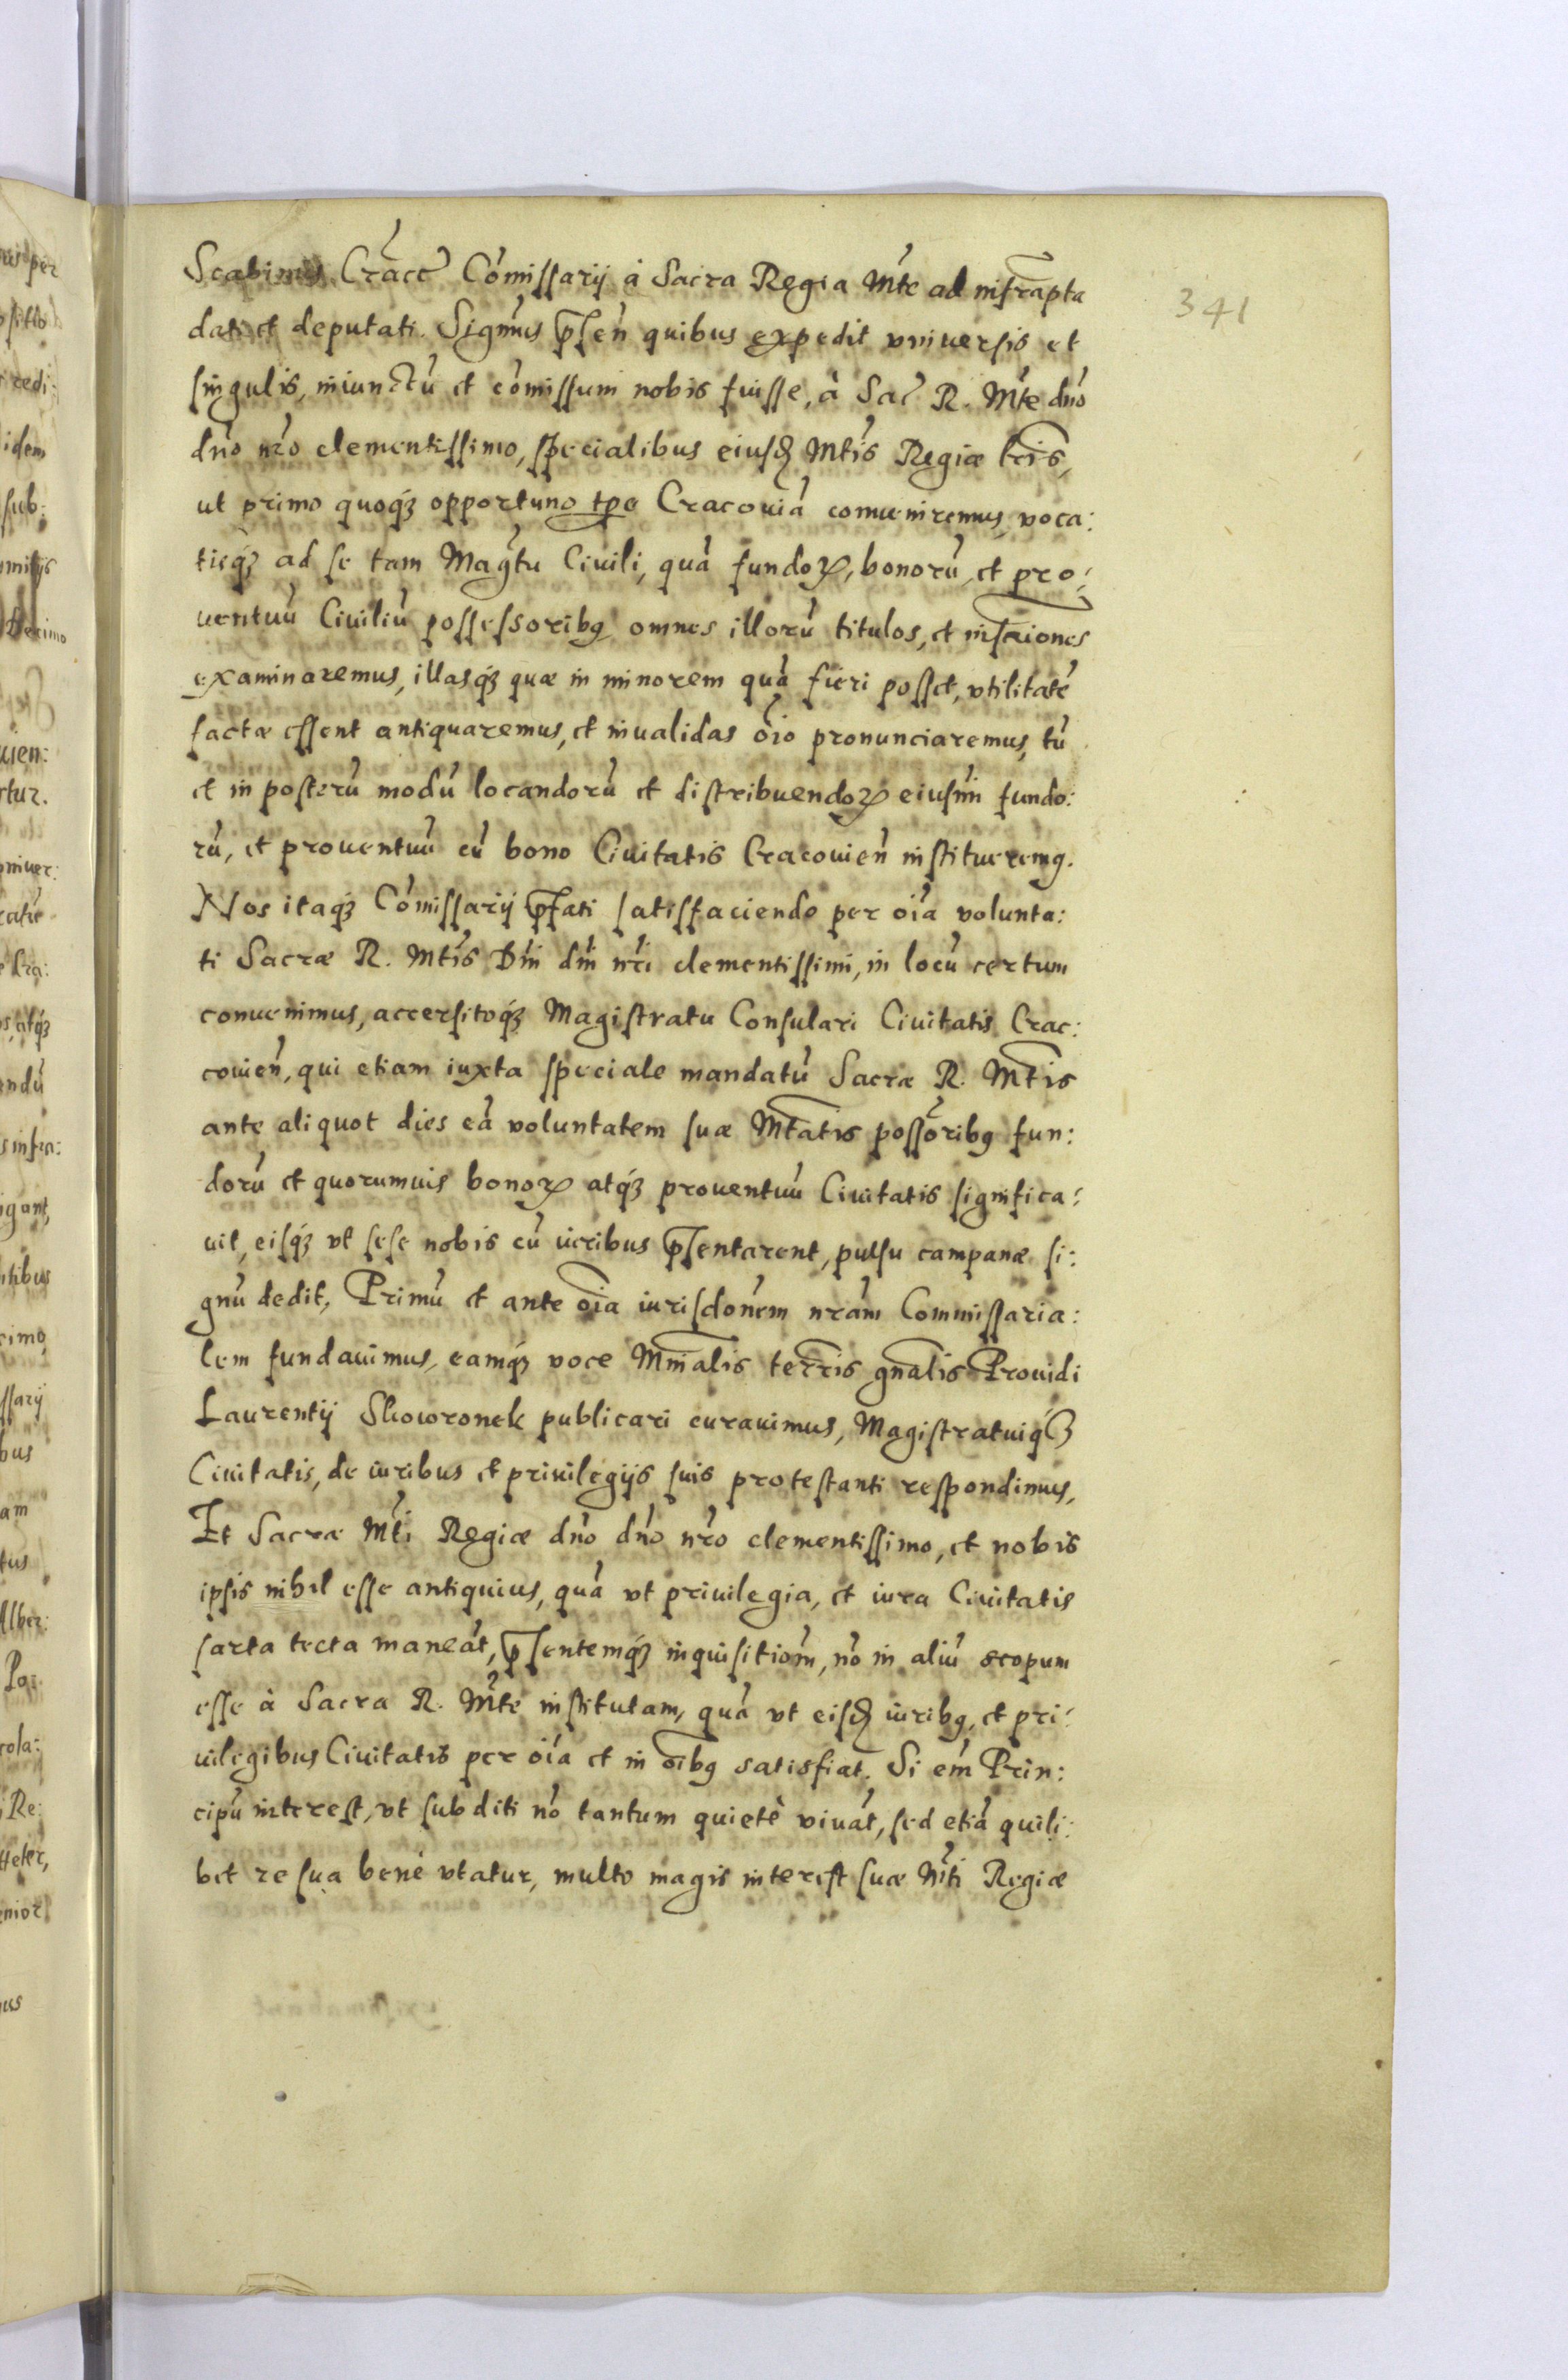 341
Scabinus Cracc̃ Com̃issarij à Sacra Regia Mt̃e ad infrap̃ta
dati et deputati. Signm̃us p̃sen̄ quibus expedit vniuersis et
singulis, iniunctū et com̃issum nobis fuisse, à Sac̃ R. Mt̃e dn̄o
dn̄o nr̃o clementissimo, specialibus eiusd̨ Mt̃is Regiæ lr̃is,
ut primo quoq́ꝫ opportuno tp̃e Cracouiā conueniremus, voca:
tisq́ꝫ ad se tam Magt̃u Ciuili, quā fundoꝝ, bonorū, et pro:
uentuū Ciuiliū possessoribꝯ omnes illorū titulos, et inscr̃iones
examinaremus, illasq́ꝫ quæ in minorem quā fieri posset, vtilitatē
factæ essent antiquaremus, et inualidas oĩo pronunciaremus, tū
et in posterū modū locandorū et distribuendoꝝ eiusm̃i fundo:
rū, et prouentuū cū bono Ciuitatis Cracouien̄ institueremꝯ.
Nos itaq́ꝫ Com̃issarij p̃fati satisfaciendo per oĩa volunta:
ti Sacræ R. Mt̃is Dn̄i dn̄i nr̃i clementissimi, in locū certum
conuenimus, accersitoq́ꝫ Magistratu Consulari Ciuitatis Crac:
couien̄, qui etiam iuxta speciale mandatū Sacræ R. Mt̃is
ante aliquot dies eā voluntatem suæ Mt̃atis poss̃oribꝯ fun:
dorū et quorumuis bonoꝝ atq́ꝫ prouentuū Ciuitatis significa:
uit, eisq́ꝫ vt sese nobis cū iuribus p̃sentarent, pulsu campanæ si:
gnū dedit, Primū et ante oĩa iurisdon̄em nr̃am Commissaria:
lem fundauimus, eamq́ꝫ voce Mñialis terr̃is gn̄alis Prouidi
Laurentij Skowronek publicari curauimus, Magistratuiq́ꝫ
Ciuitatis, de iuribus et priuilegijs suis protestanti respondimus,
Et Sacræ Mt̃i Regiæ dn̄o dn̄o nr̃o clementissimo, et nobis
ipsis nihil esse antiquius, quā vt priuilegia, et iura Ciuitatis
sarta tecta maneāt, p̃sentemq́ꝫ inquisitiom̃, nō in aliū scopum
esse à Sacra R. Mt̃e institutam, quā vt eisd̨ iuribꝯ, et pri:
uilegibus Ciuitatis per oĩa et in oĩbꝯ satisfiat. Si em̃ Prin:
cipū interest, vt subditi nō tantum quietè viuāt, sed etiā quili:
bet re sua benè vtatur, multo magis interest suæ Mt̃i Regiæ